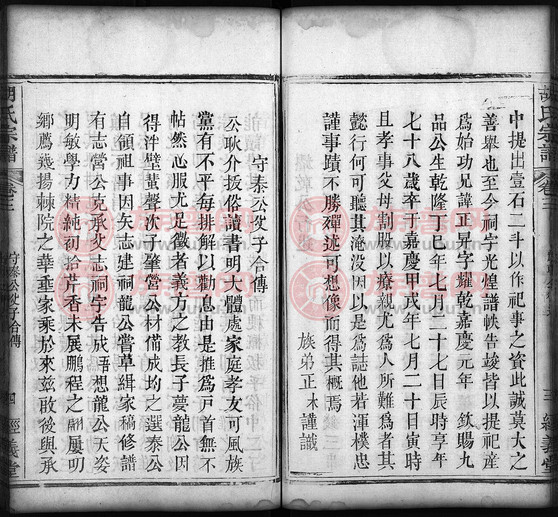 中提出壹石二斗以作祀事之資此誠莫大之
善舉也至今祠宇光煌譜帙告竣皆以提祀產
為始功兄諱正昇字耀乾嘉慶元年　欽賜九
品公生乾隆丁巳年七月二十七辰時享年
七十八歲卒于嘉慶甲戌年七月二十日寅時
且孝事父母割股以療親尤為人所難為者其
懿行何可聽其淹没因以是為誌他若渾樸忠
謹事蹟不勝殫述可想像而得其概焉
族弟正木謹識
守泰公父子合傳
公耿介拔俗讀書明大體處家庭孝友可風族
黨有不平每排解以勸息由是推為戸首無不
帖然心服尤足徵者義方之教長子夢龍公因
得泮壁蜚聲次子肇營公材備成均之選泰公
自領祖事因矢志建祠龍公嘗草緝家稿修譜
有志營公克承父志祠宇告成語想龍公天姿
明敏學力精純初拾芹香未展鵬程之翮屢明
鄉薦幾揚棘院之華垂家乘於來茲啟後與承
胡氏宗譜
卷三
守泰公父子合傳
四
經義堂